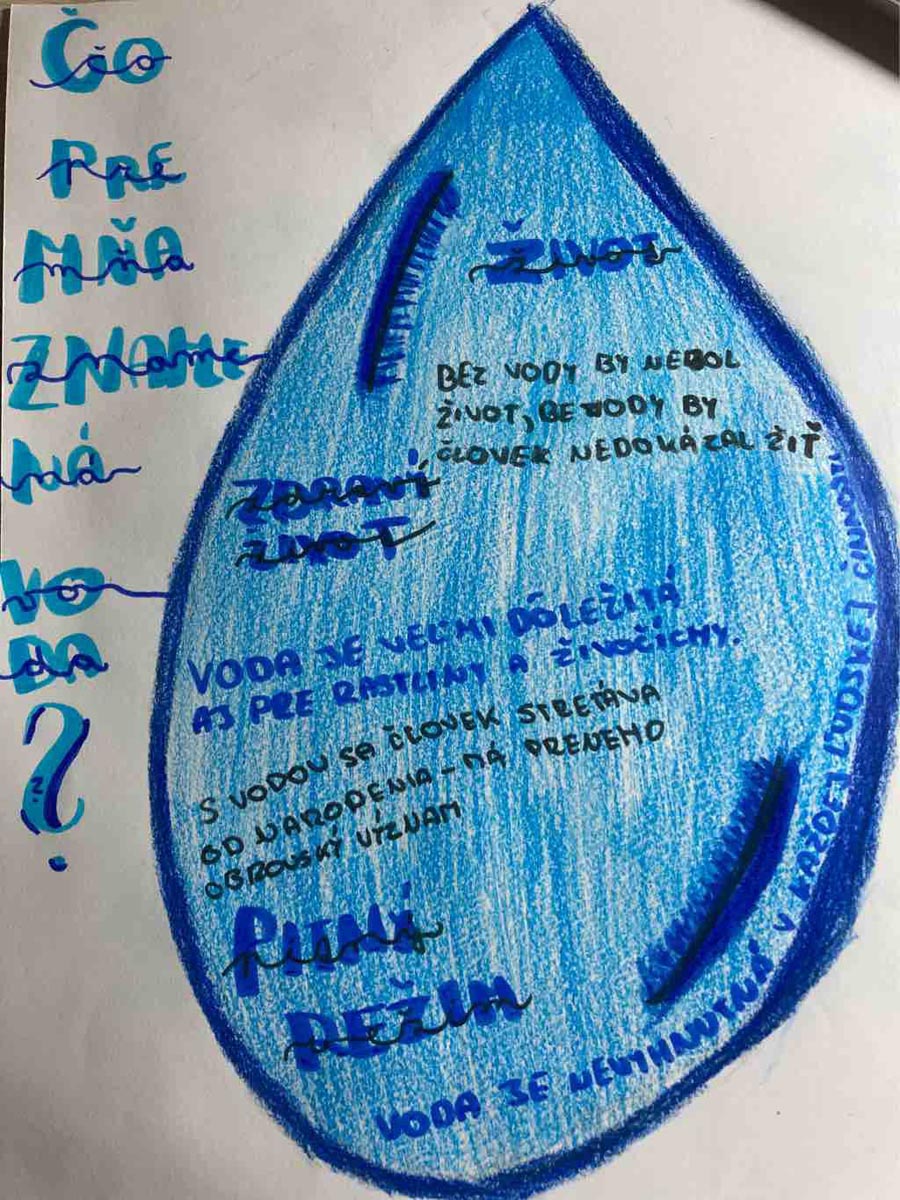 ČO
PRE
MŇA
ZNAME
NÁ
VO
DA
?
ŽIVOT
BEZ VODY BY NEBOL
ŽIVOT, BEZ VODY BY
ČLOVEK NEDOKÁZAL ŽIŤ
ZDRAVÝ
ŽIVOT
VODA JE VEĽMI DÔLEŽITÁ
AJ PRE RASTLINY A ŽIVOČÍCHY.
S VODOU SA ČLOVEK STRETÁVA
OD NARODENIA - MÁ PRENEHO
OBROVSKÝ VÝZNAM
PITNÝ
REŽIM
VODA JE NEVYHNUTNÁ V KAŽDEJ ĽUDSKEJ ČINNOSTI